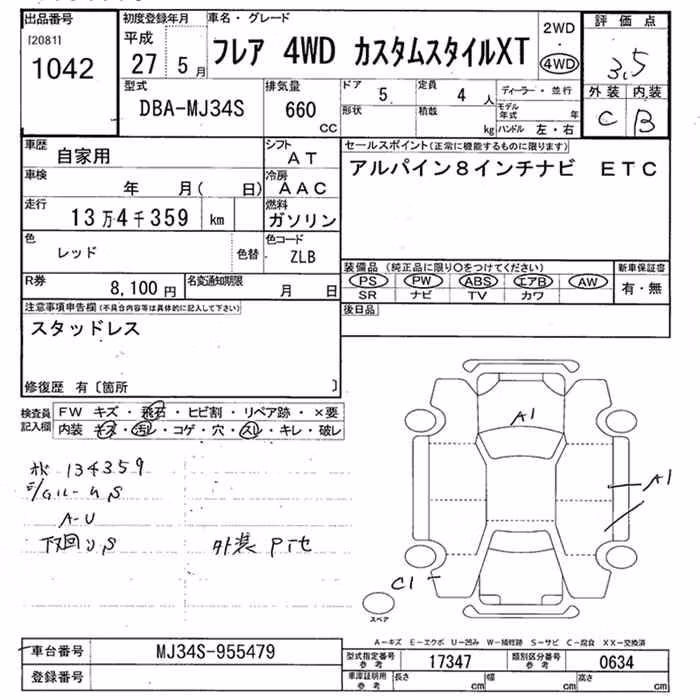 出品番号
[2081]
1042
初度登録年月
平成
27 5 月
車名・グレード
フレア 4WD カスタムスタイルXT
2WD
・
4WD
評価点
3.5
外装 内装
C B
型式
DBA-MJ34S
排気量
660
CC
ドア
5
定員
4 人
形状
積載
kg
ディーラー・並行
モデル年式 年
ハンドル 左・右
車歴
自家用
シフト
AT
車検
年 月( 日)
冷房
AAC
走行
13万4千359 km
燃料
ガソリン
色
レッド
色替
色コード
ZLB
R券
8,100円
名変通知期限
月 日
セールスポイント(正常に機能するものに限ります)
アルパイン8インチナビ ETC
装備品 (純正品に限り○をつけてください)
PS PW ABS エアB AW
SR ナビ TV カワ
新車保証書
有・無
後日品
注意事項申告欄(不具合内容等は具体的に記入して下さい)
スタッドレス
修復歴 有〔箇所 〕
検査員記入欄
FW キズ・飛石・ヒビ割・リペア跡・×要
内装 キズ・汚レ・コゲ・穴・スレ・キレ・破レ
134359
A-U
下回りS
外装
A1
A1
C1
スペア
A-キズ E-エクボ U-凹み W-補修跡 S-サビ C-腐食 XX-交換済
車台番号
MJ34S-955479
登録番号
型式指定番号参考
17347
類別区分番号参考
0634
車庫証明用参考
長さ cm
幅 cm
高さ cm